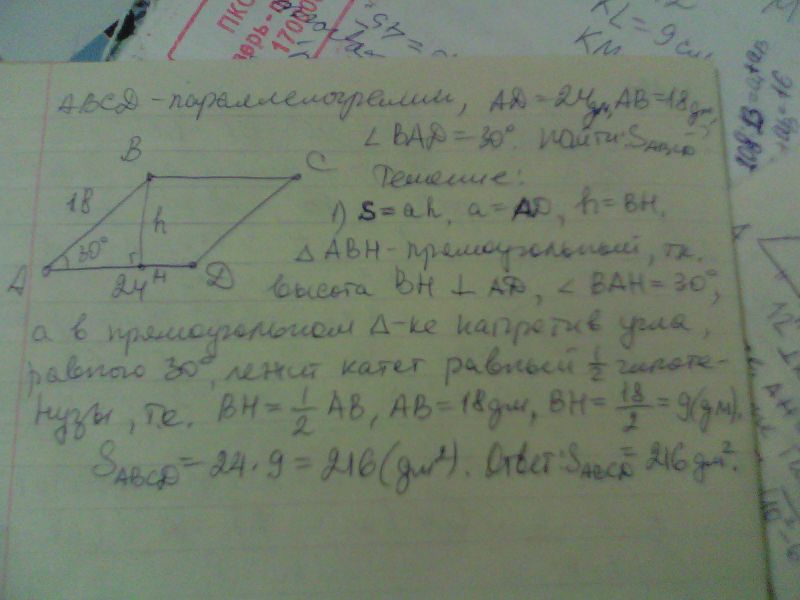 ПКО
верь-п
170000
KL = 9 см
KM
ABCD - параллелограмм, AD = 24 дм, AB = 18 дм,
∠BAD = 30°. Найти: S ABCD
Решение:
1) S = ah, a = AD, h = BH,
△ABH - прямоугольный, т.к.
высота BH ⊥ AD, ∠BAH = 30°,
а в прямоугольном Δ-ке напротив угла,
равного 30°, лежит катет равный 1/2 гипоте-
нузы, т.е. BH = 1/2 AB, AB = 18 дм, BH = 18/2 = 9 (дм).
S ABCD = 24 · 9 = 216 (дм²). Ответ: S ABCD = 216 дм².
B
C
18
h
30°
A
24
H
D